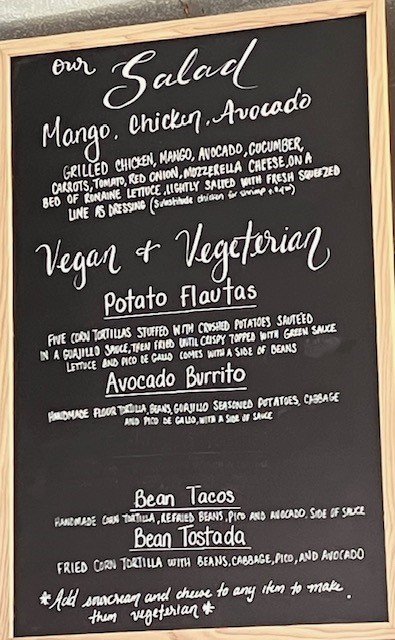 our Salad
Mango, Chicken, Avocado
GRILLED CHICKEN, MANGO, AVOCADO, CUCUMBER,
CARROTS, TOMATO, RED ONION, MOZZERELLA CHEESE, ON A
BED OF ROMAINE LETTUCE, LIGHTLY SALTED WITH FRESH SQUEEZED
LIME AS DRESSING (Substitude chicken for shrimp
Vegan + Vegeterian
Potato Flautas
FIVE CORN TORTILLAS STUFFED WITH CRUSHED POTATOES SAUTEED
IN A GUAJILLO SAUCE, THEN FRIED UNTIL CRISPY TOPPED WITH GREEN SAUCE
LETTUCE AND PICO DE GALLO COMES WITH A SIDE OF BEANS
Avocado Burrito
HANDMADE FLOOR TORTILLA, BEANS, GORJILLO SEASONED POTATOES, CABBAGE
AND PICO DE GALLO, WITH A SIDE OF SAUCE
Bean Tacos
HANDMADE CORN TORTILLA, REFRIED BEANS, PICO AND AVOCADO, SIDE OF SAUCE
Bean Tostada
FRIED CORN TORTILLA WITH BEANS, CABBAGE, PICO, AND AVOCADO
*Add sourcream and cheese to any item to make
them vegeterian*